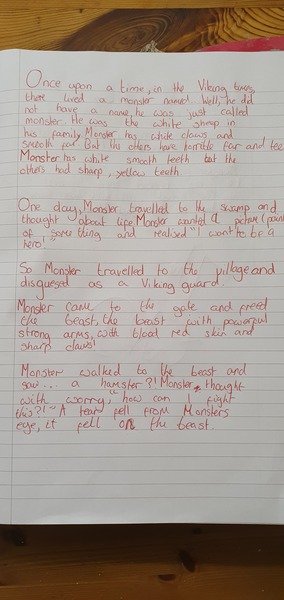 Once upon a time, in the Viking times,
there lived a monster named... Well, he did
not have a name, he was just called
monster. He was the white sheep in
his family. Monster has white claws and
smooth fur. But the others have horrible fur and feet
Monster has white smooth teeth but the
others had sharp, yellow teeth.
One day, Monster travelled to the swamp and
thought about life. Monster wanted a
of something and realised "I want to be a
hero!"
So Monster travelled to the village and
disguesed as a Viking guard.
Monster came to the gate and freed
the beast, the beast with powerful
strong arms, with blood red skin and
sharp claws!
Monster walked to the beast and
saw... a hamster?! Monster thought
with worry, "how can I fight
this?!" A tear fell from Monsters
eye, it fell on the beast.